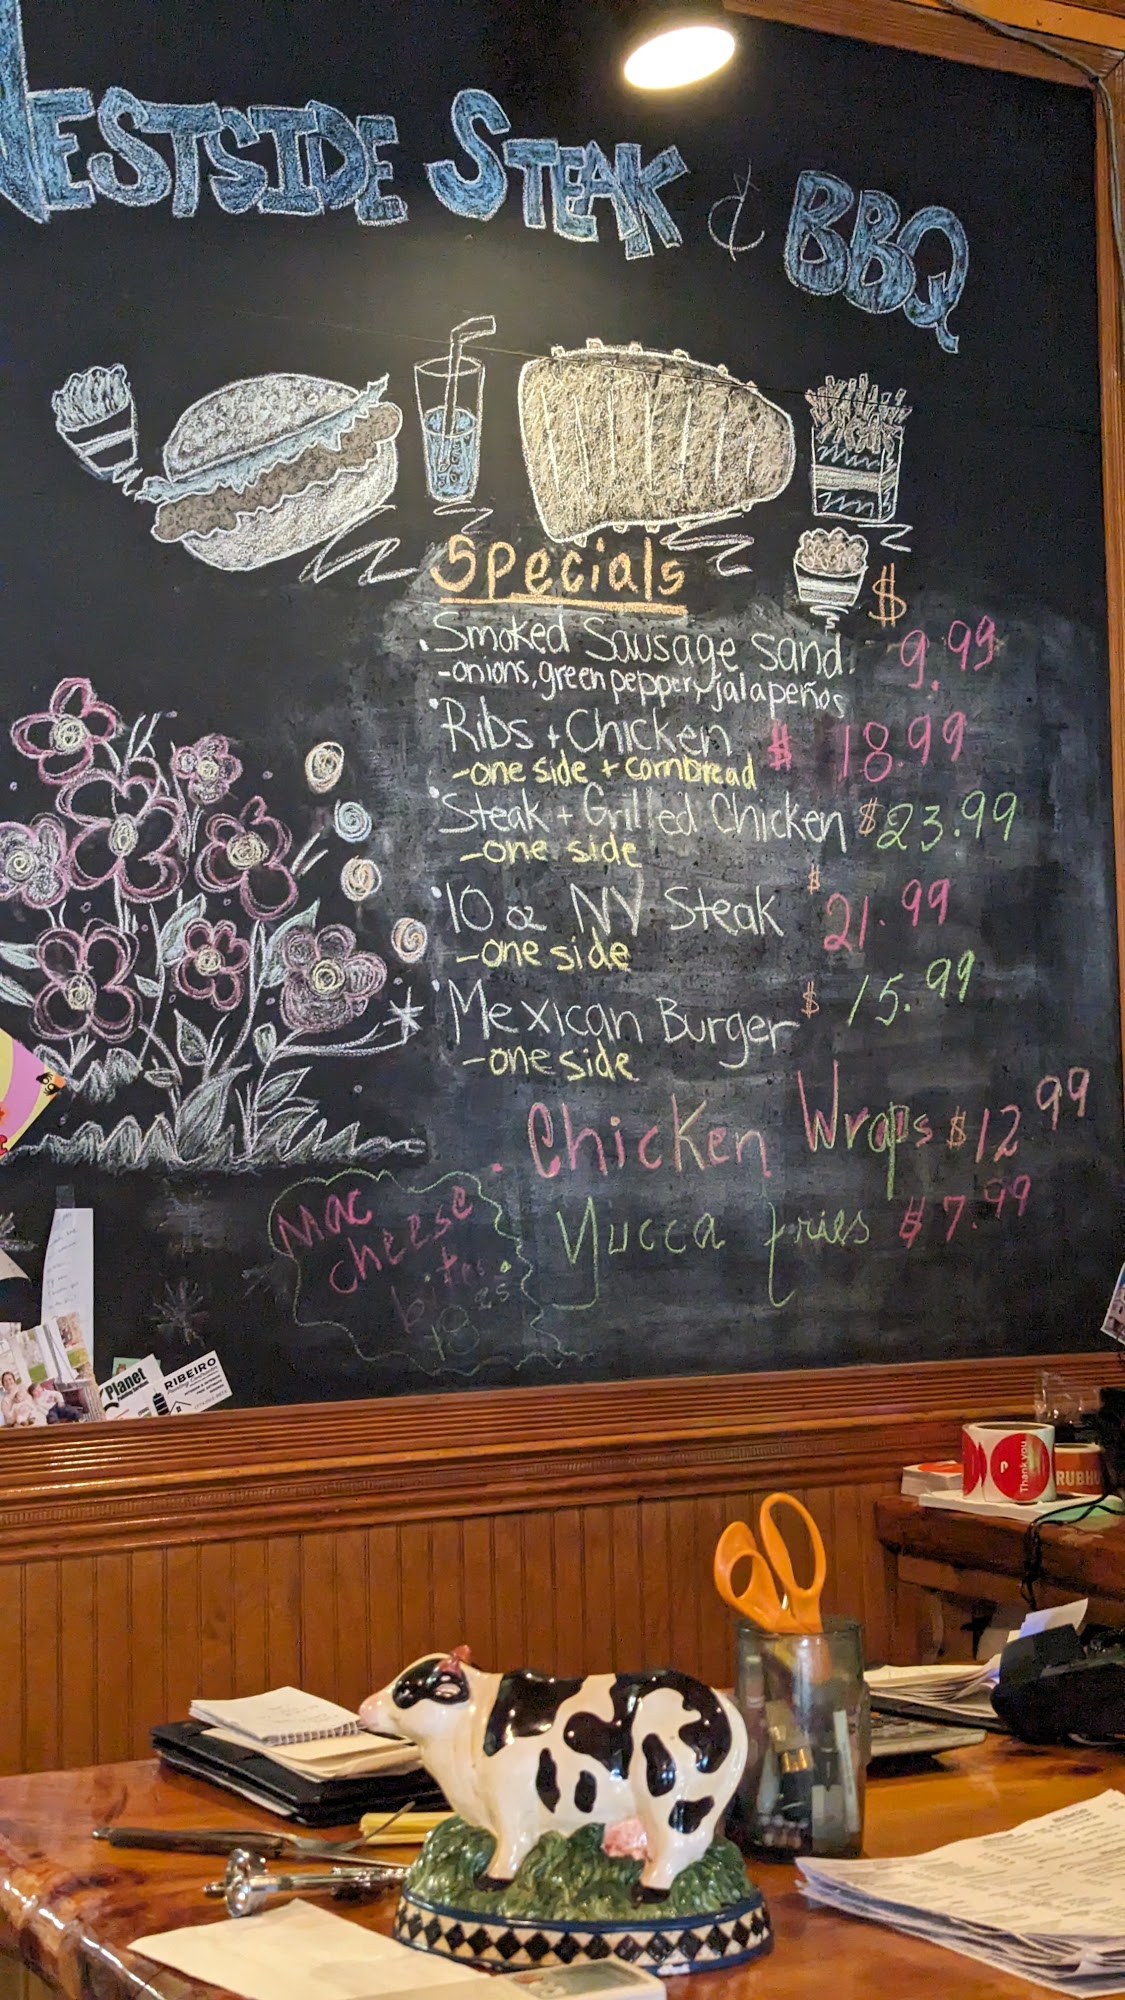 WESTSIDE STEAK & BBQ
Specials
$
Smoked Sausage Sand. 9.99
-onions, green peppers, jalapeños
Ribs + Chicken $ 18.99
-one side + cornbread
Steak + Grilled Chicken $23.99
-one side
10 oz NY Steak $21.99
-one side
Mexican Burger $15.99
-one side
Chicken Wraps $12.99
Yucca fries $7.99
Mac
cheese
bites
Planet
RIBEIRO
Thank you